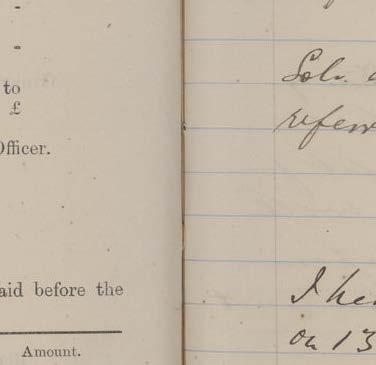 -
-
to
£
Officer.
aid before the
Amount.
Solr.
I
on 13